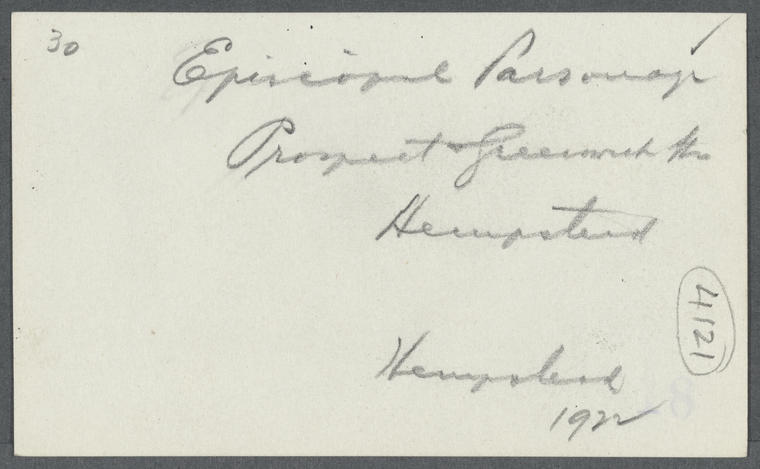 30
Episcopal Parsonage
Prospect & Greenwich Sts
Hempstead
4121
Hempstead
1922